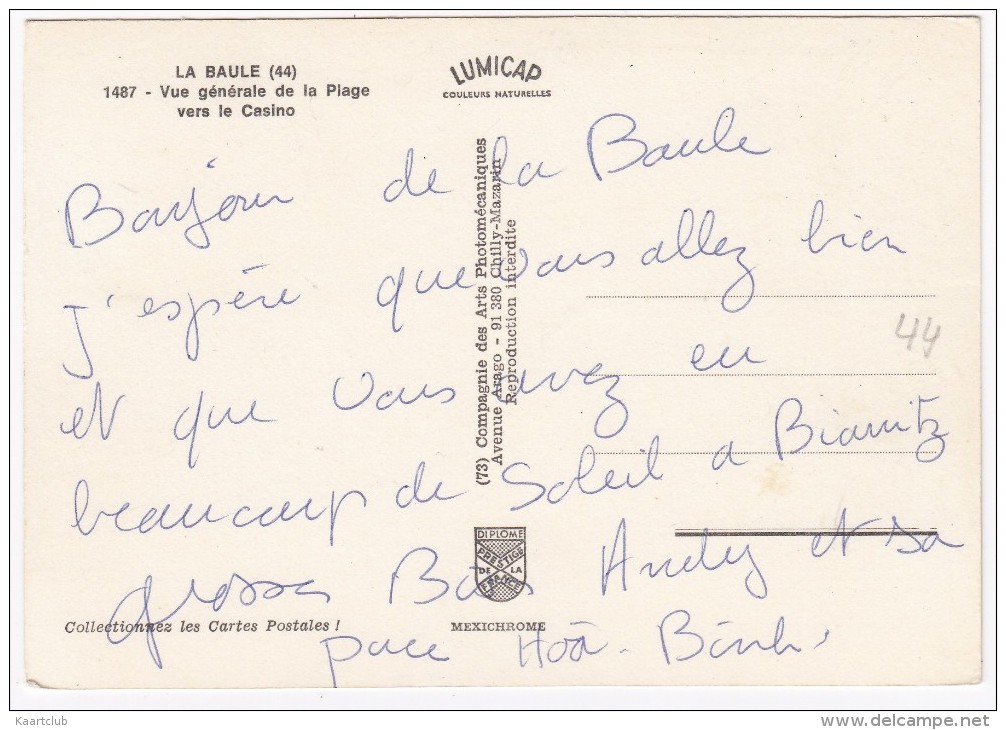 LA BAULE (44)
1487 - Vue générale de la Plage
vers le Casino
LUMICAP
COULEURS NATURELLES
Bonjour de la Baule
j'espère que vous allez bien
et que vous avez eu
beaucoup de Soleil a Biarritz
grosses Bises Andy et sa
puce Hoà-Binh
44
(73) Compagnie des Arts Photomécaniques
Avenue Arago - 91 380 Chilly-Mazarin
Reproduction interdite
DIPLOME
PRESTIGE
DE LA
FRANCE
Collectionnez les Cartes Postales !
MEXICHROME
Kaartclub
www.delcampe.net